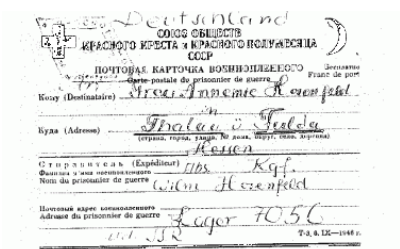 Deutschland
СОЮЗ ОБЩЕСТВ
КРАСНОГО КРЕСТА и КРАСНОГО ПОЛУМЕСЯЦА
СССР
ПОЧТОВАЯ КАРТОЧКА ВОЕННОПЛЕННОГО Бесплатно
Carte postale du prisonnier de guerre Franc de port
Кому (Destinataire) Frau Annemie Hosenfeld
in
Куда (Adresse) Thalau ü. Fulda
(страна, город, улица, № дома, округ, село, деревня)
Hessen
Отправитель (Expéditeur) Kgf.
Фамилия и имя военнопленного
Nom du prisonnier de guerre Wilm Hosenfeld
Почтовый адрес военнопленного
Adresse du prisonnier de guerre Lager 7056